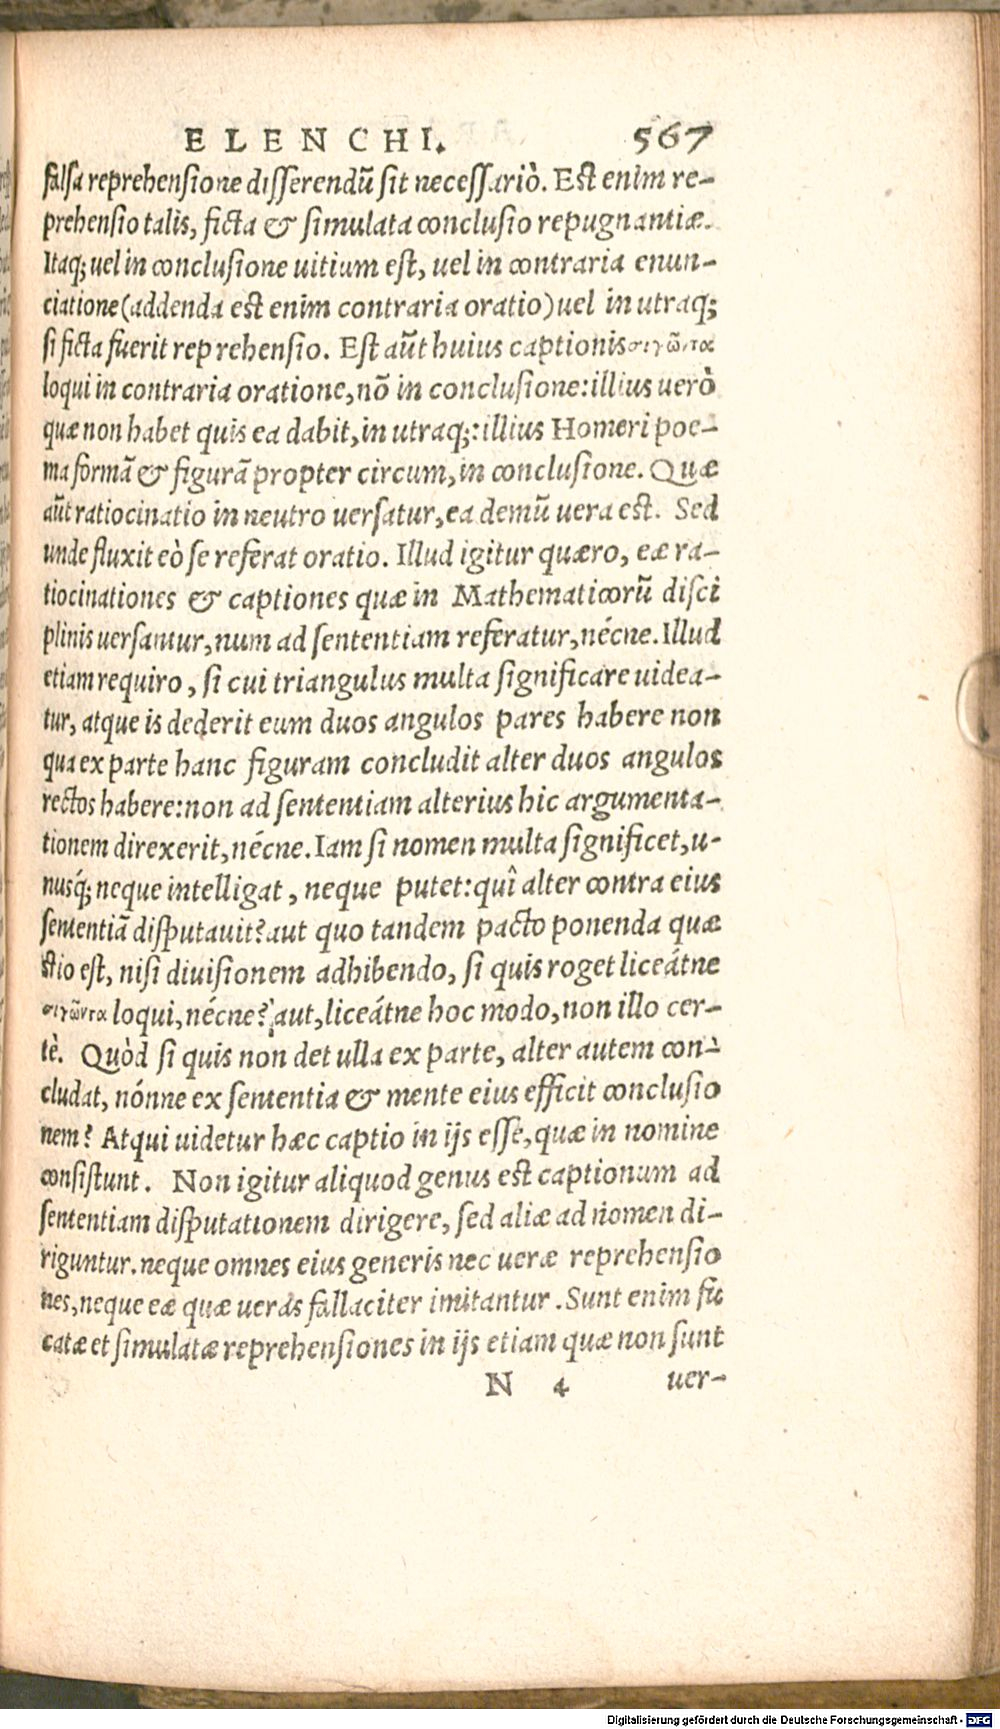 ELENCHI. 567
falsa reprehensione disserendũ sit necessariò. Est enim re-
prehensio talis, ficta & simulata conclusio repugnantiæ.
Itaq; uel in conclusione uitium est, uel in contraria enun-
ciatione (addenda est enim contraria oratio) uel in utraq;
si ficta fuerit reprehensio. Est aũt huius captionis σιγῶντα
loqui in contraria oratione, nõ in conclusione: illius uerò
quæ non habet quis ea dabit, in utraq;: illius Homeri poe-
ma formã & figurã propter circum, in conclusione. Quæ
aũt ratiocinatio in neutro uersatur, ea demũ uera est. Sed
unde fluxit eò se referat oratio. Illud igitur quæro, eæ ra-
tiocinationes & captiones quæ in Mathematicorũ disci
plinis uersantur, num ad sententiam referatur, nécne. Illud
etiam requiro, si cui triangulus multa significare uidea-
tur, atque is dederit eum duos angulos pares habere non
qua ex parte hanc figuram concludit alter duos angulos
rectos habere: non ad sententiam alterius hic argumenta-
tionem direxerit, nécne. Iam si nomen multa significet, u-
nusq́; neque intelligat, neque putet: quî alter contra eius
sententiã disputauit? aut quo tandem pacto ponenda quæ
stio est, nisi diuisionem adhibendo, si quis roget liceátne
σιγῶντα loqui, nécne? aut, liceátne hoc modo, non illo cer-
tè. Quòd si quis non det ulla ex parte, alter autem con-
cludat, nónne ex sententia & mente eius efficit conclusio
nem? Atqui uidetur hæc captio in ijs esse, quæ in nomine
consistunt. Non igitur aliquod genus est captionum ad
sententiam disputationem dirigere, sed aliæ ad nomen di-
riguntur. neque omnes eius generis nec ueræ reprehensio
nes, neque eæ quæ ueras fallaciter imitantur. Sunt enim fu
catæ et simulatæ reprehensiones in ijs etiam quæ non sunt
N 4 uer-
Digitalisierung gefördert durch die Deutsche Forschungsgemeinschaft - DFG